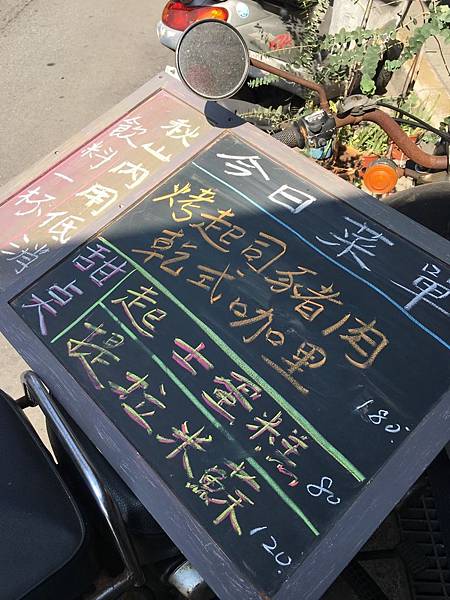 今日菜單
烤起司豬肉
乾式咖里
180.
甜點
起士蛋糕 80
提拉米蘇 120.
秋山內用低消
飲料一杯